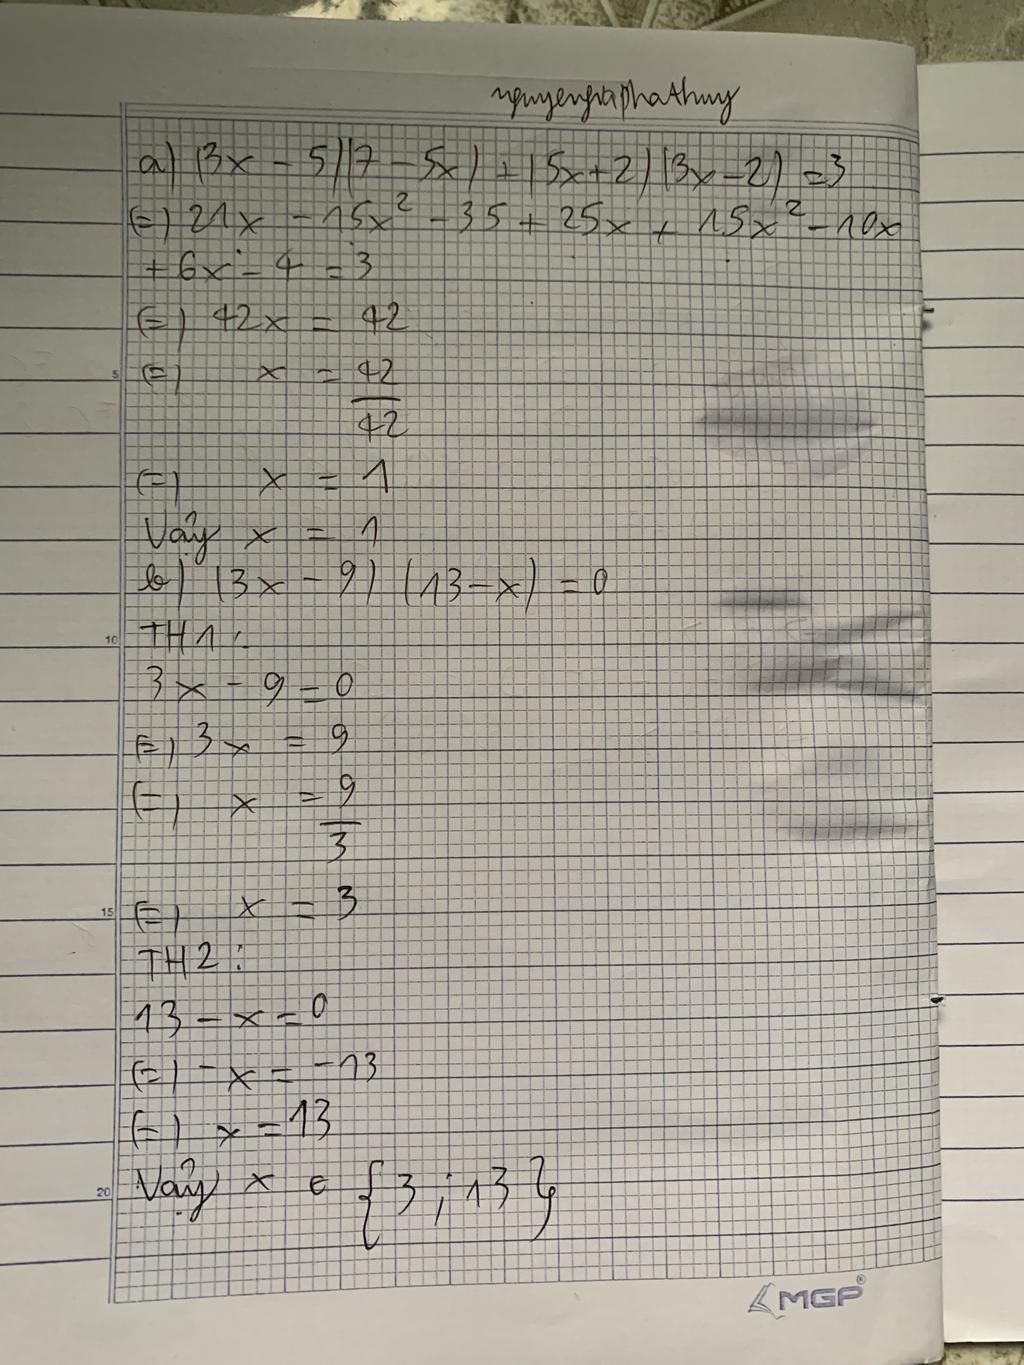 nguyengiaphathuy
a) (3x - 5)(7 - 5x) + (5x + 2)(3x - 2) = 3
(=) 21x - 15x² - 35 + 25x + 15x² - 10x
+ 6x - 4 = 3
(=) 42x = 42
(=) x = 42/42
(=) x = 1
Vậy x = 1
b) (3x - 9) (13 - x) = 0
TH1:
3x - 9 = 0
(=) 3x = 9
(=) x = 9/3
(=) x = 3
TH2:
13 - x = 0
(=) -x = -13
(=) x = 13
Vậy x ∈ {3 ; 13}
5
10
15
20
MGP